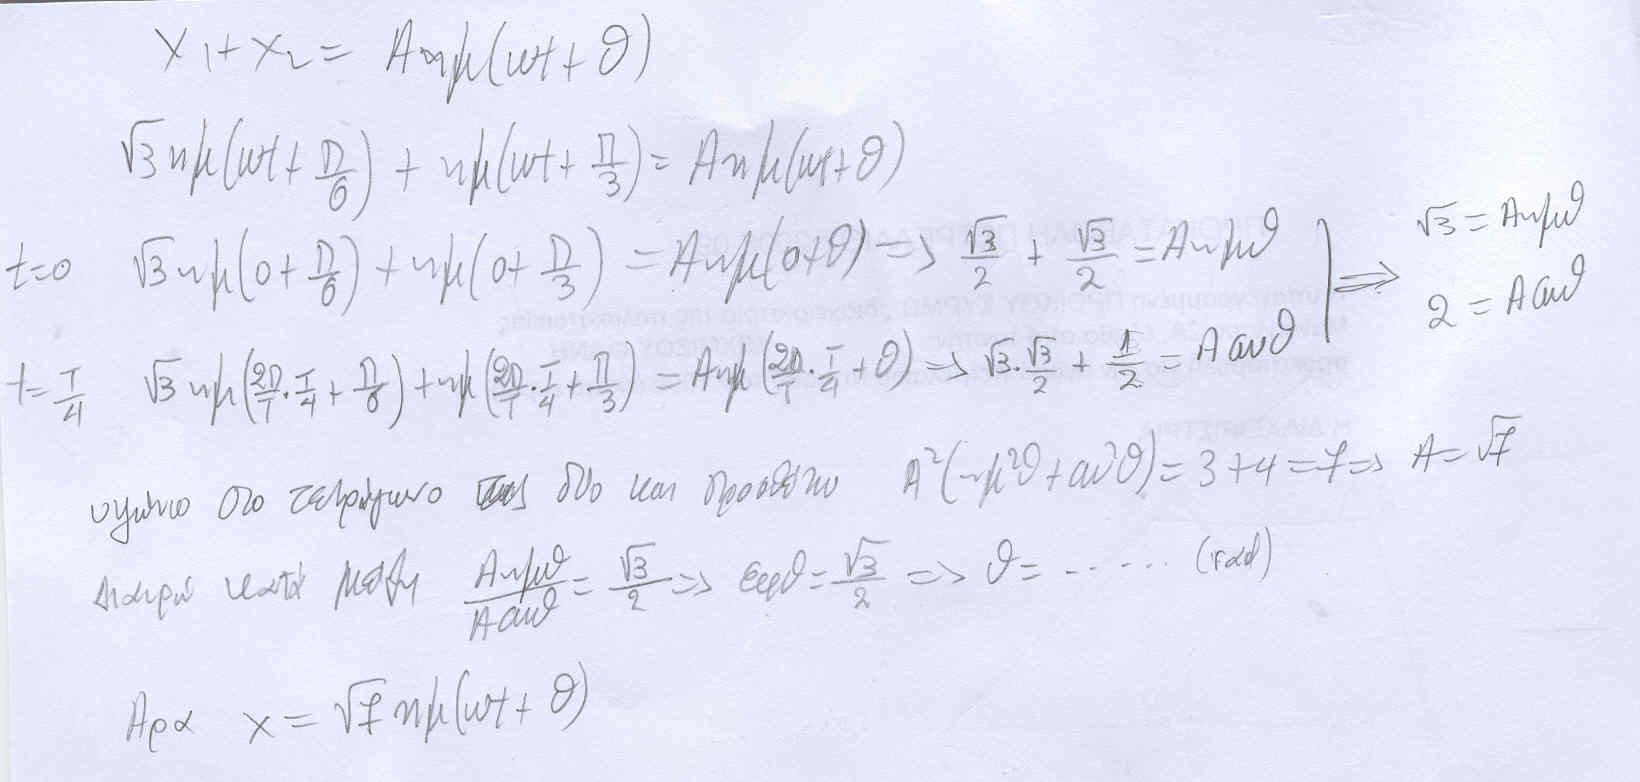 x₁ + x₂ = Aημ(ωt + θ)
√3 ημ(ωt + π/6) + ημ(ωt + π/3) = Aημ(ωt + θ)
t=0 √3 ημ(0 + π/6) + ημ(0 + π/3) = Aημ(0+θ) => √3/2 + √3/2 = Aημθ
t=T/4 √3 ημ(2π/T · T/4 + π/6) + ημ(2π/T · T/4 + π/3) = Aημ(2π/T · T/4 + θ) => √3·√3/2 + 1/2 = Aσυνθ
=> √3 = Aημθ
2 = Aσυνθ
υψώνω στο τετράγωνο τις δύο και προσθέτω A²(ημ²θ + συν²θ) = 3 + 4 = 7 => A = √7
Διαιρώ κατά μέλη Aημθ/Aσυνθ = √3/2 => εφθ = √3/2 => θ = ...... (rad)
Αρα x = √7 ημ(ωt + θ)